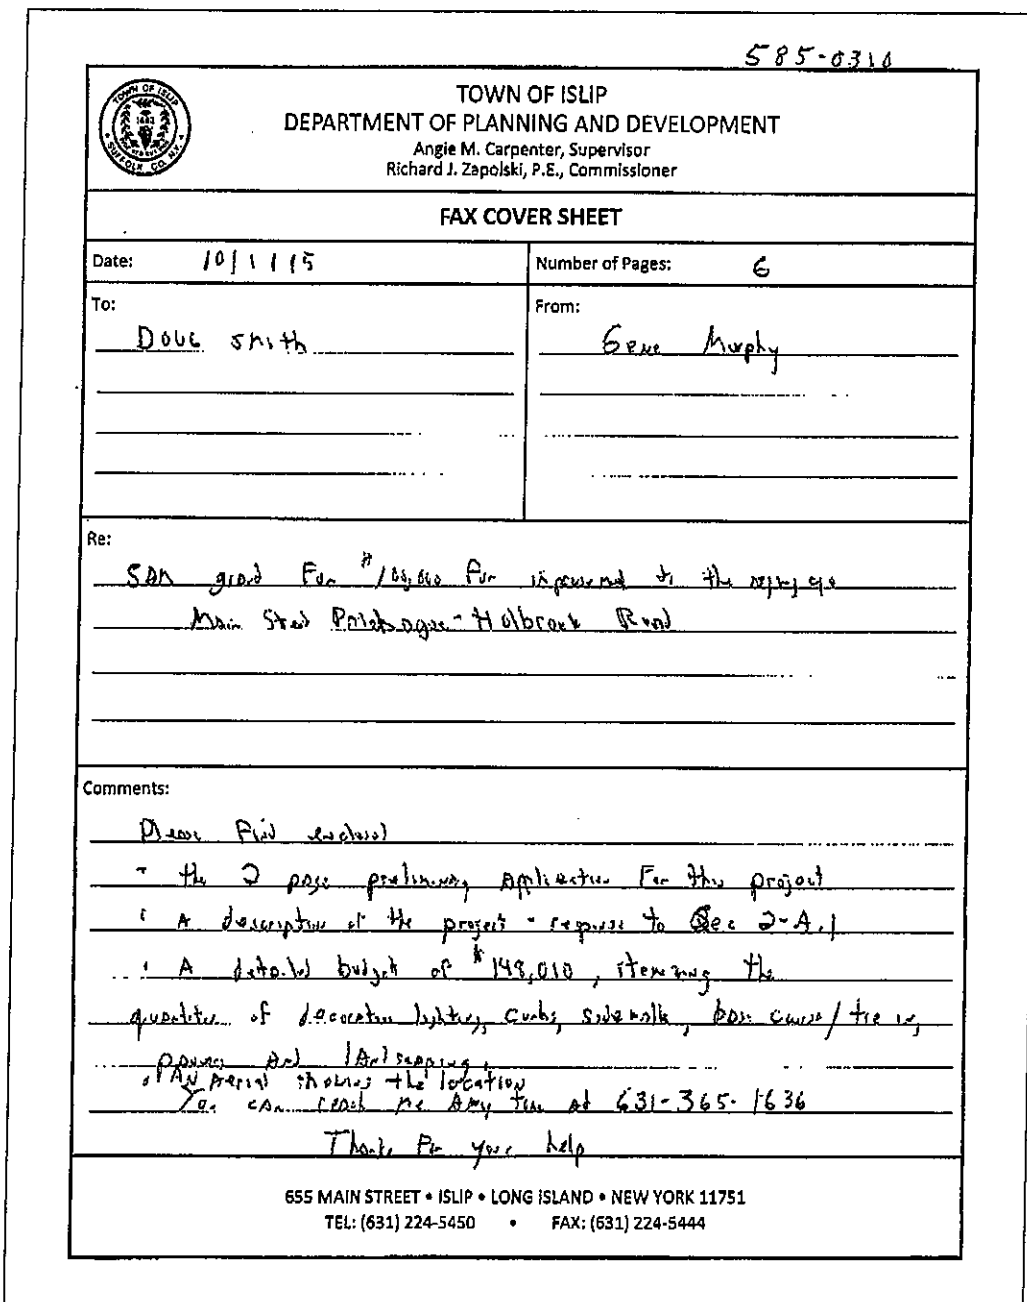 585-0310
TOWN OF ISLIP
SUFFOLK CO. N.Y.
TOWN OF ISLIP
DEPARTMENT OF PLANNING AND DEVELOPMENT
Angie M. Carpenter, Supervisor
Richard J. Zapolski, P.E., Commissioner
FAX COVER SHEET
Date: 10/1/15
Number of Pages: 6
To:
Doug Smith
From:
Gene Murphy
Re:
SAM grant For $100,000 for improvement to the
Main Street Patchogue-Holbrook Road
Comments:
Please Find enclosed
- the 2 page preliminary application For this project
· A description of the project - response to Sec 2-A.1
· A detailed budget of $148,010, itemizing the
quantities of decorative lighting, curbs, sidewalk, base course/tie in,
pavers and landscaping
· An aerial showing the location
You can reach me any time at 631-365-1636
Thanks For your help
655 MAIN STREET • ISLIP • LONG ISLAND • NEW YORK 11751
TEL: (631) 224-5450 • FAX: (631) 224-5444